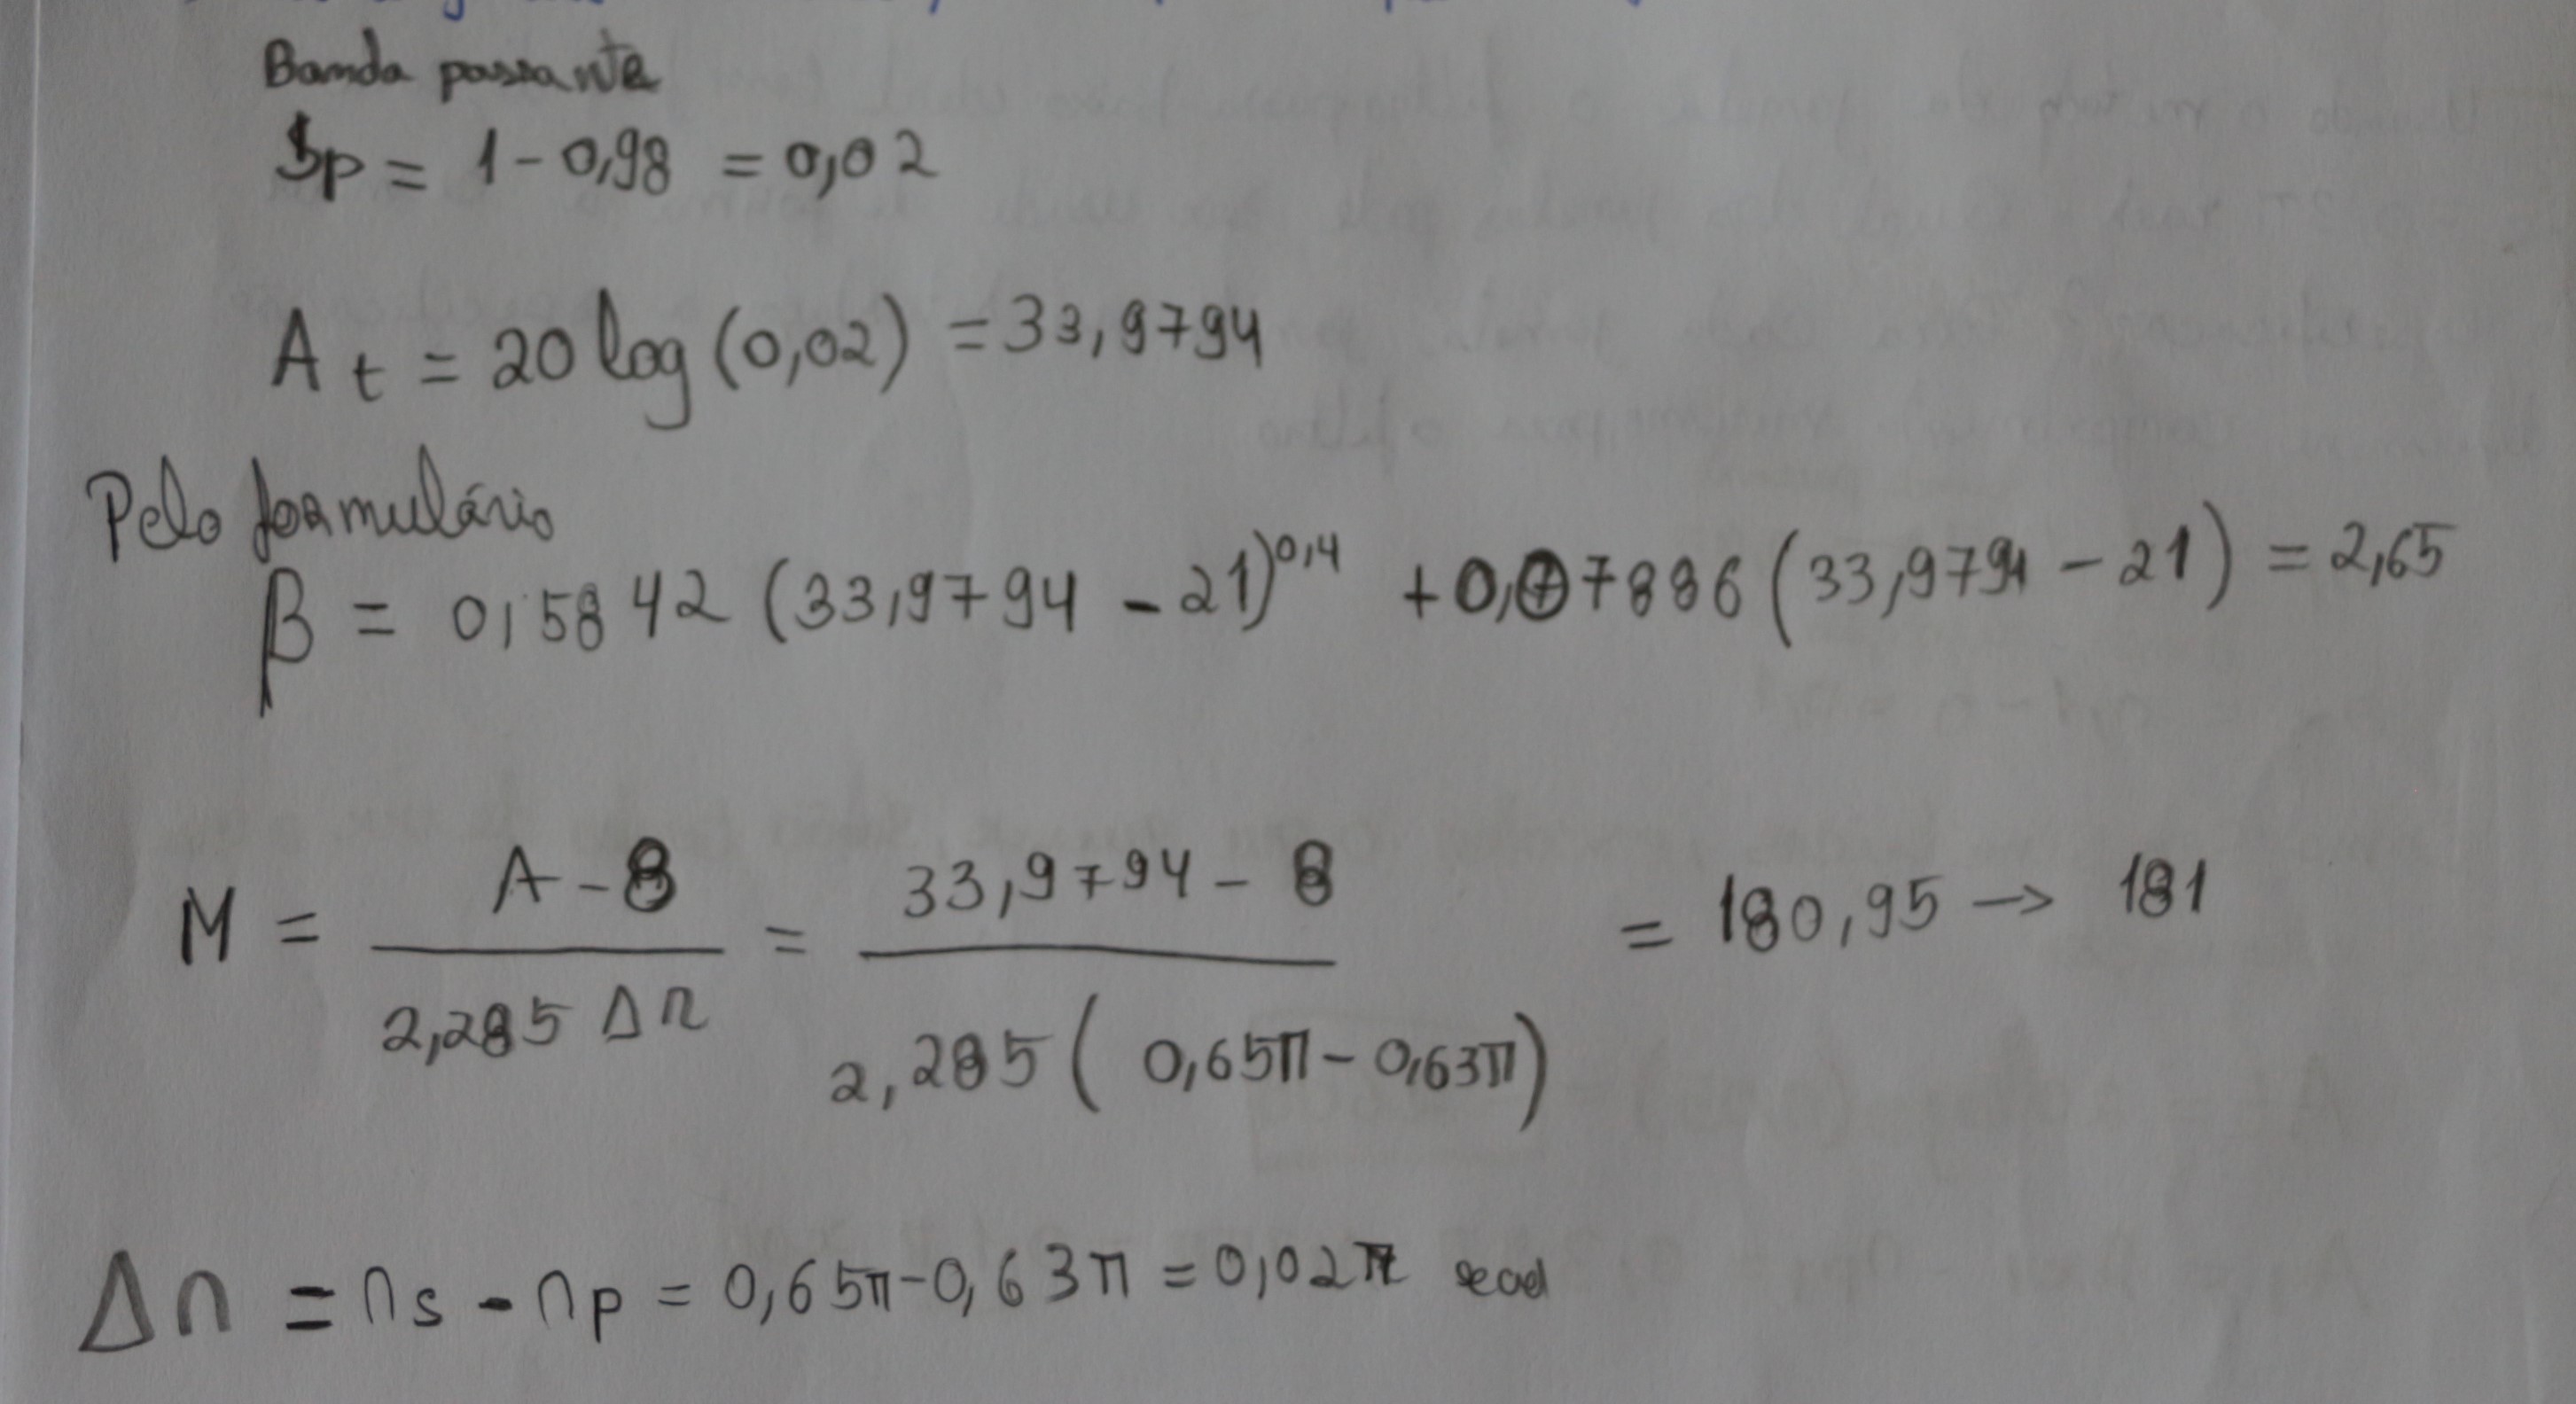 Banda passante
δp = 1 - 0,98 = 0,02
At = 20 log (0,02) = 33,9794
Pelo formulário
β = 0,5842 (33,9794 - 21)^0,4 + 0,07886 (33,9794 - 21) = 2,65
M = (A - 8) / (2,285 Δn) = (33,9794 - 8) / (2,285 (0,65π - 0,63π)) = 180,95 → 181
Δn = ns - np = 0,65π - 0,63π = 0,02π rad